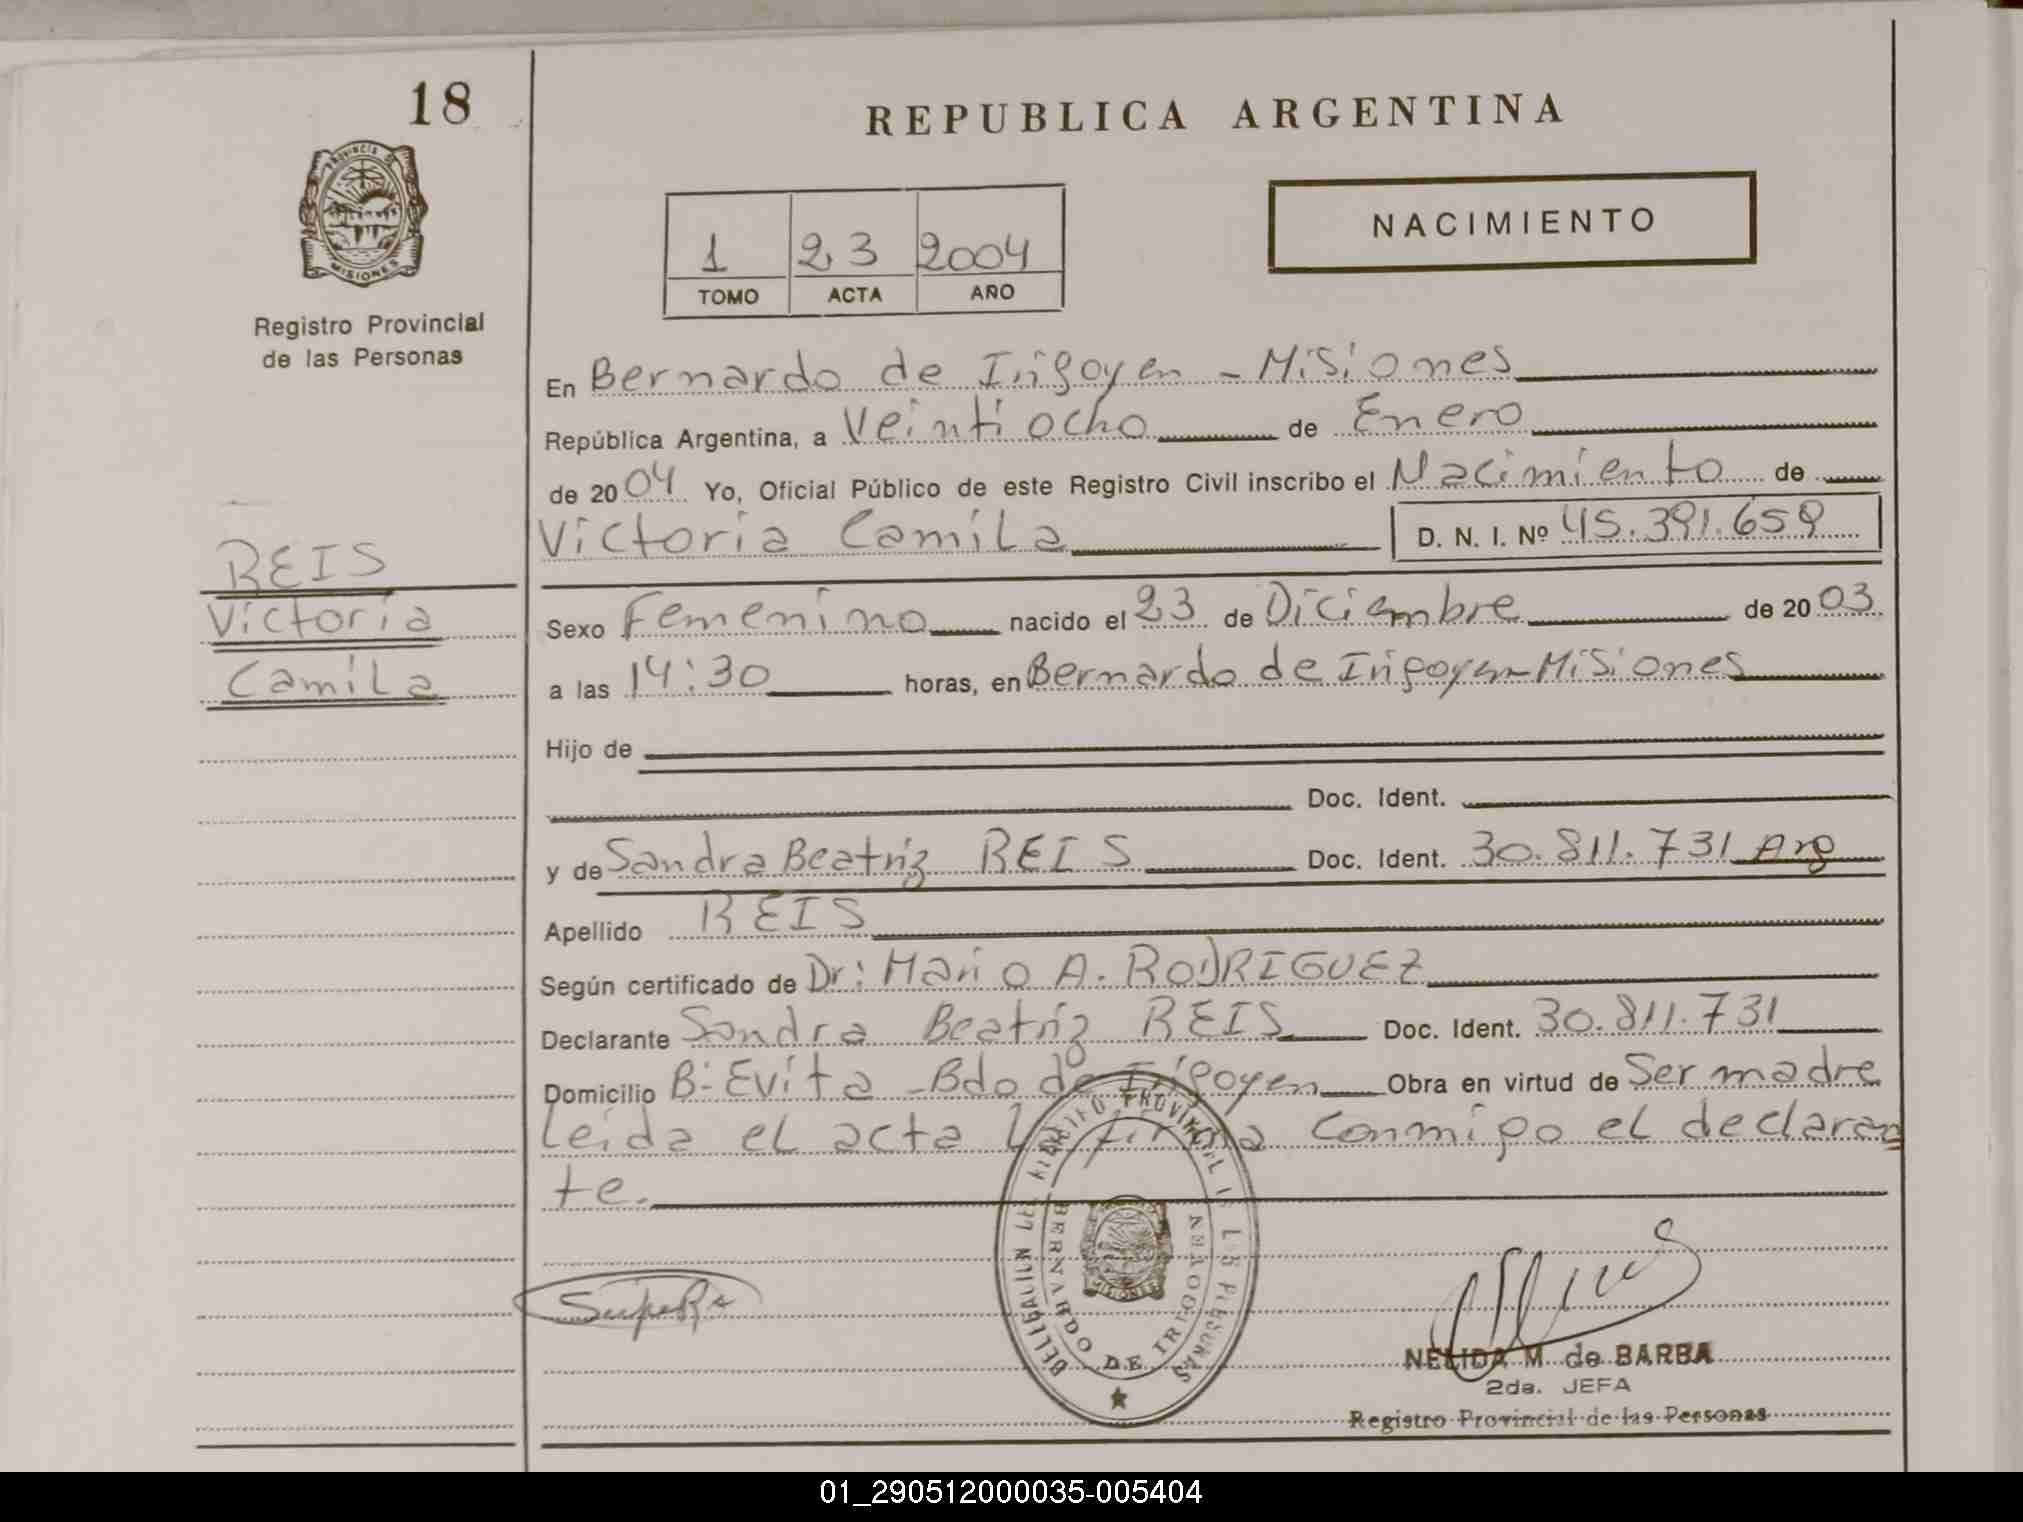 18
REPUBLICA ARGENTINA
PROVINCIA DE
MISIONES
NACIMIENTO
1 23 2004
TOMO ACTA AÑO
Registro Provincial
de las Personas
En Bernardo de Irigoyen - Misiones
República Argentina, a Veintiocho de Enero
de 2004 Yo, Oficial Público de este Registro Civil inscribo el Nacimiento de
Victoria Camila D. N. I. Nº 45.391.659
REIS
Victoria
Camila
Sexo Femenino nacido el 23 de Diciembre de 2003
a las 14:30 horas, en Bernardo de Irigoyen - Misiones
Hijo de
Doc. Ident.
y de Sandra Beatriz REIS Doc. Ident. 30.811.731 Arg
Apellido REIS
Según certificado de Dr: Mario A. RODRIGUEZ
Declarante Sandra Beatriz REIS Doc. Ident. 30.811.731
Domicilio B: Evita - Bdo de Irigoyen Obra en virtud de Ser madre
Leida el acta la firma conmigo el declaran
te.
BERNARDO DE IRIGOYEN
MISIONES
NELIDA M. de BARBA
2da. JEFA
Registro Provincial de las Personas
01_290512000035-005404